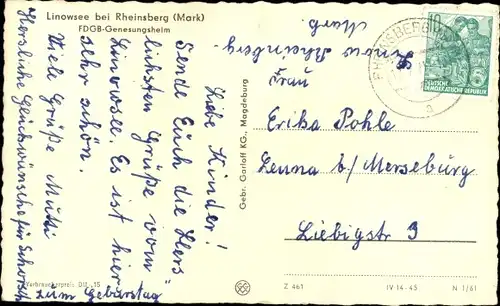 Linowsee bei Rheinsberg (Mark)
FDGB-Genesungsheim
Liebe Kinder!
Sende Euch die Herz
lichsten Grüße vom
Linowsee. Es ist hier
sehr schön.
Viele Grüße Mutti
Herzliche Glückwünsche für
zum Geburtstag
Verbraucherpreis: DM -,15
Gebr. Garloff KG., Magdeburg
Linow Rheinsberg
Mark.
RHEINSBERG
a
10
DEUTSCHE
DEMOKRATISCHE REPUBLIK
Frau
Erika Pohle
Leuna b/ Merseburg
Liebigstr 9
Z 461
IV 14-45
N 1/61